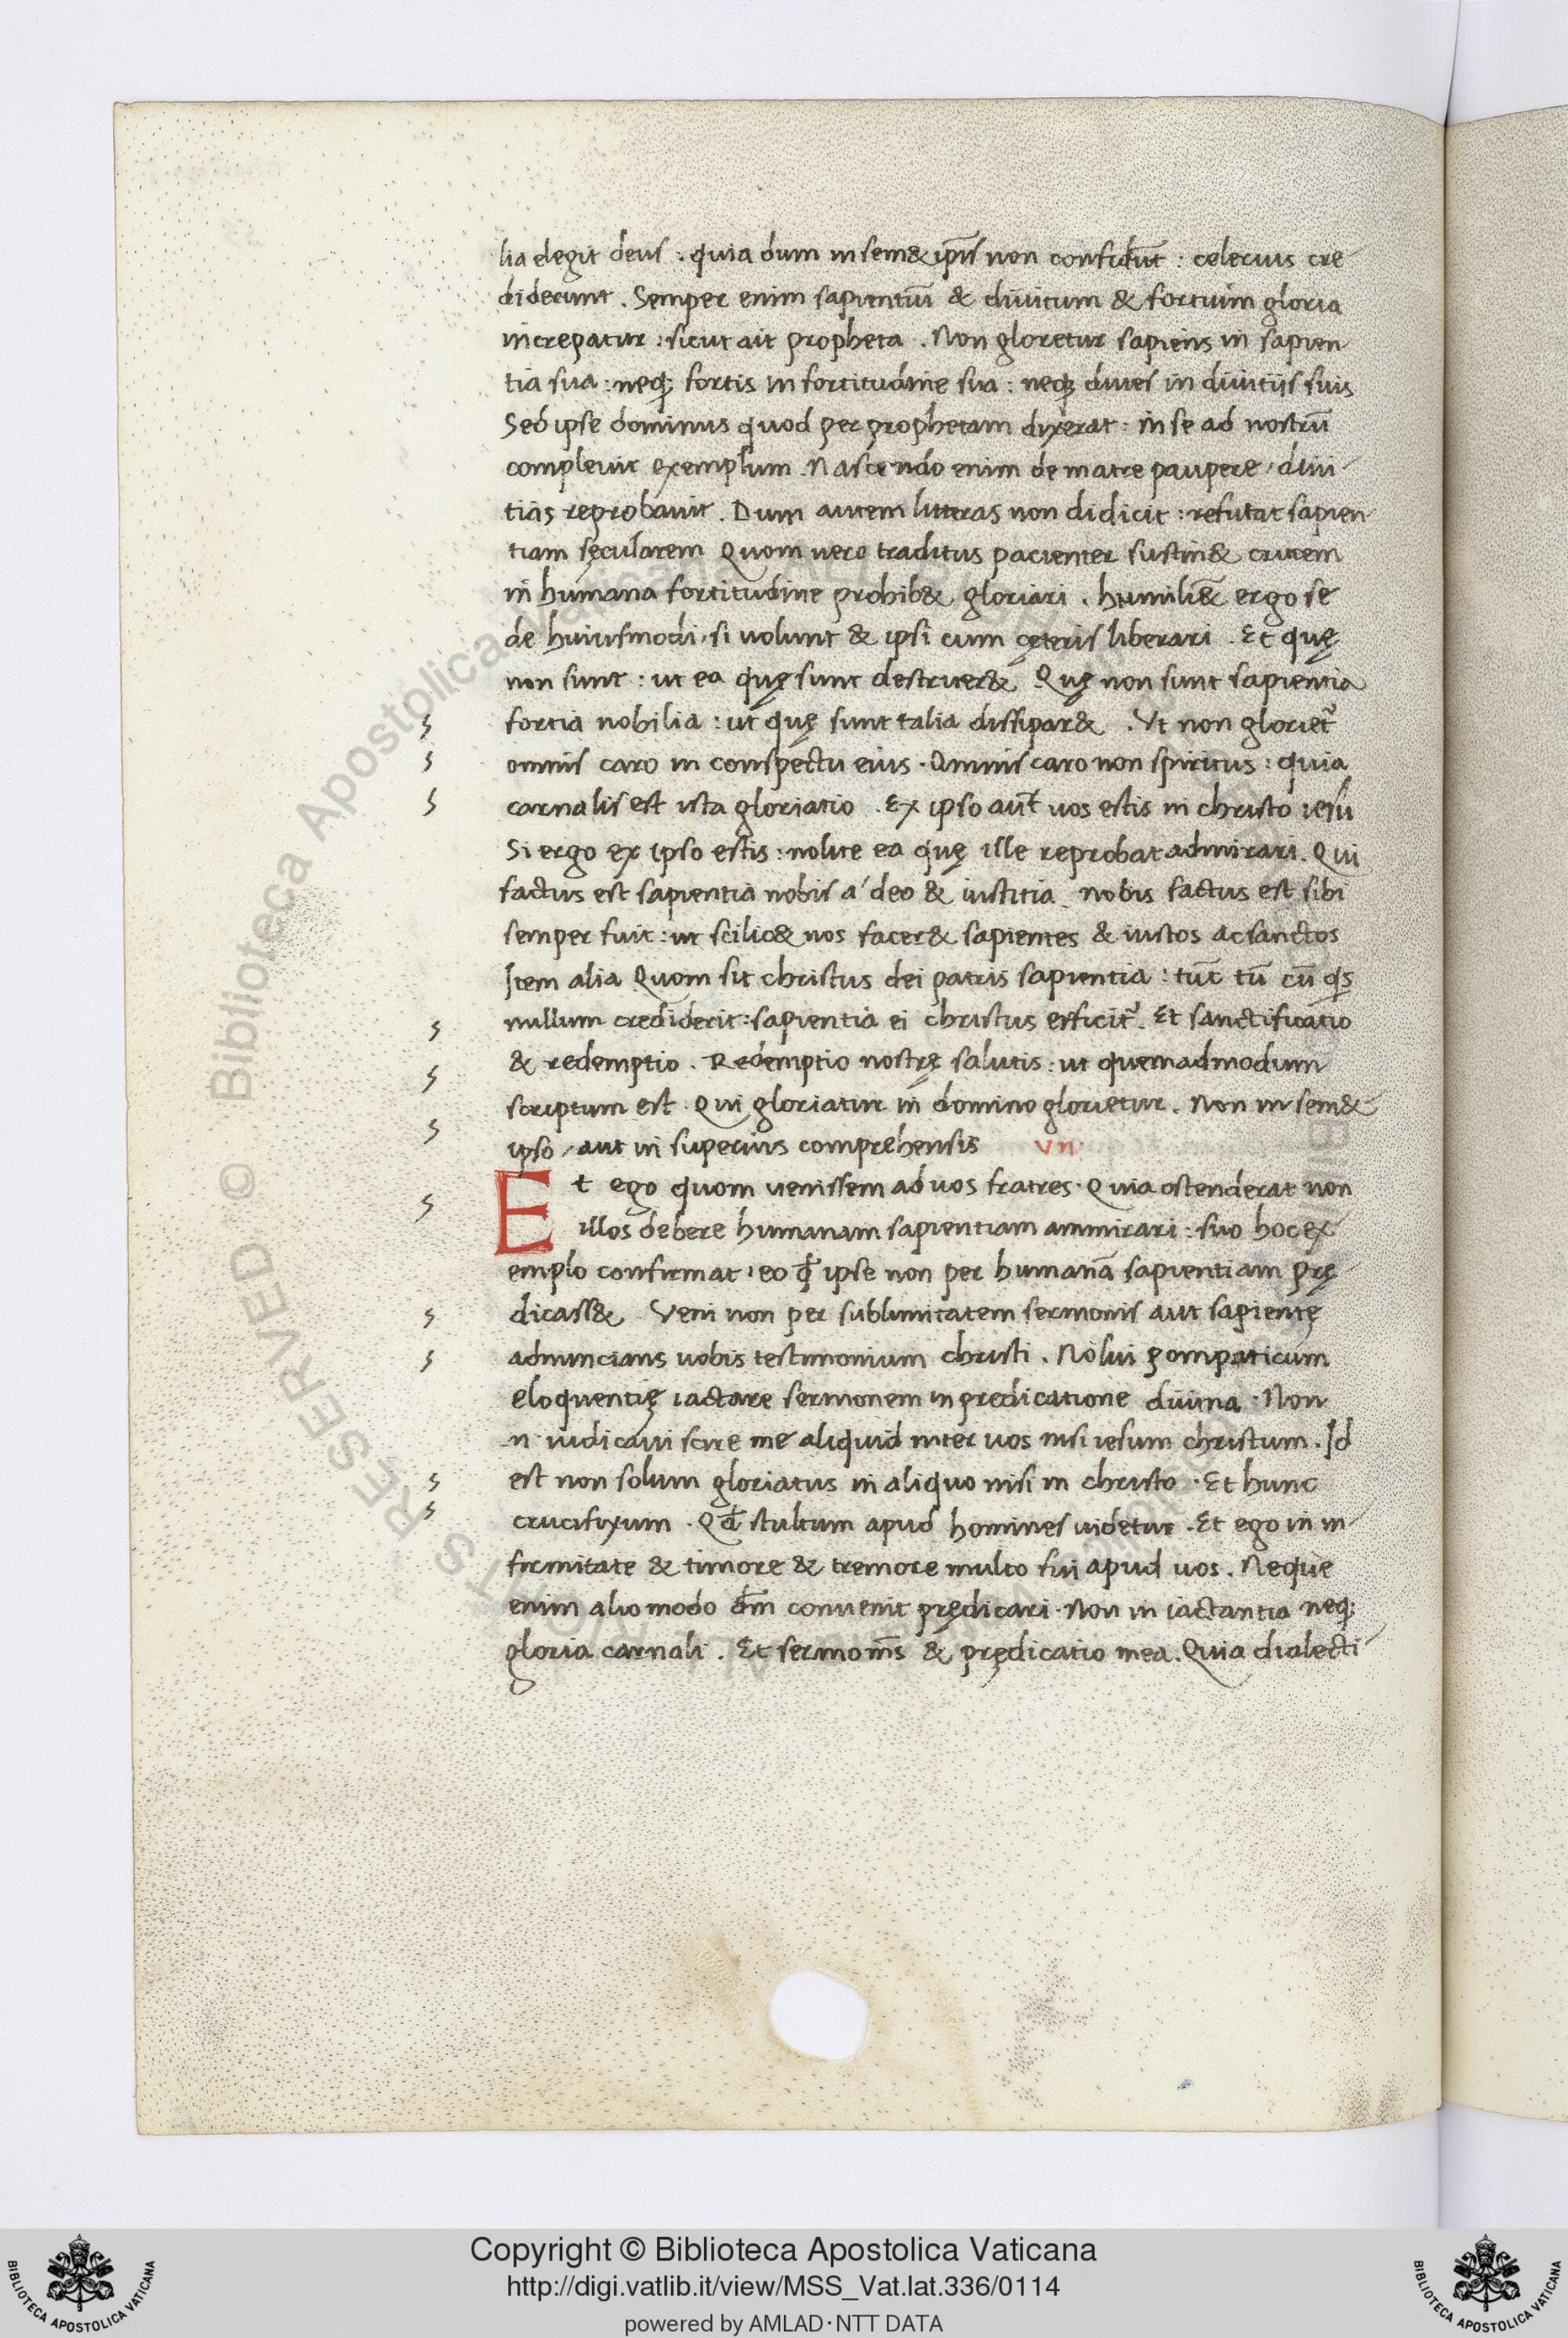 lia elegit deus : quia dum in sem& ip̄is non confidūt : celerius cre
diderunt . Semper enim sapientiū & diuitum & fortium gloria
increpatur : sicut ait propheta . Non gloretur sapiens in sapien
tia sua : neq; fortis in fortitudine sua : neq; diues in diuitiis suis
Sed ipse dominus quod per prophetam dixerat : in se ad nostrū
compleuit exemplum . Nascendo enim de matre paupere / diui
tias reprobauit . Dum autem litteras non didicit : refutat sapien
tiam sęcularem Quom uero traditus pacienter sustin& crucem
in humana fortitudine prohib& gloriari . humiliē& ergo se
de huiusmodi / si uolunt & ipsi cum cęteris liberari . Et quę
non sunt : ut ea quę sunt destruer& Quę non sunt sapientia
fortia nobilia : ut quę sunt talia dissipar& . Vt non glorietͬ
omnis caro in conspectu eius . Omnis caro non spiritus : quia
carnalis est ista gloriatio . Ex ipso aut̄ uos estis in christo iesu
Si ergo ex ipso estis : nolite ea quę ille reprobat admirari . Qui
factus est sapientia nobis a' deo & iustitia . nobis factus est sibi
semper fuit : ut scilic& nos facer& sapientes & iustos ac sanctos
Item alia Quom sit christus dei patris sapientia : tūc tū cū qs
nullum crediderit : sapientia ei christus efficitͬ . Et sanctificatio
& redemptio . Redemptio nostrę salutis : ut quemadmodum
scriptum est . Qui gloriatur in domino glorietur . Non in sem&
ipso / aut in superius comprehensis vn
Et ego quom uenissem ad uos fratres . Quia ostenderat non
illos debere humanam sapientiam ammirari : suo hoc ex
emplo confirmat : eo qđ ipse non per humanā sapientiam prę
dicass& Veni non per sublimitatem sermonis aut sapientę
adnuncians uobis testimonium christi . Nolui pompaticum
eloquentię iactare sermonem in predicatione diuina . Non
n iudicaui scire me aliquid inter uos nisi iesum christum . Id
est non solum gloriatus in aliquo nisi in christo . Et hunc
crucifixum . Qđ stultum apud homines uidetur . Et ego in in
firmitate & timore & tremore multo fui apud uos . Neque
enim alio modo dm̄ conuenit prędicari . Non in iactantia neq;
gloria carnali . Et sermo m̄s & prędicatio mea . Quia dialecti
Copyright © Biblioteca Apostolica Vaticana
http://digi.vatlib.it/view/MSS_Vat.lat.336/0114
powered by AMLAD·NTT DATA
BIBLIOTECA APOSTOLICA VATICANA
BIBLIOTECA APOSTOLICA VATICANA